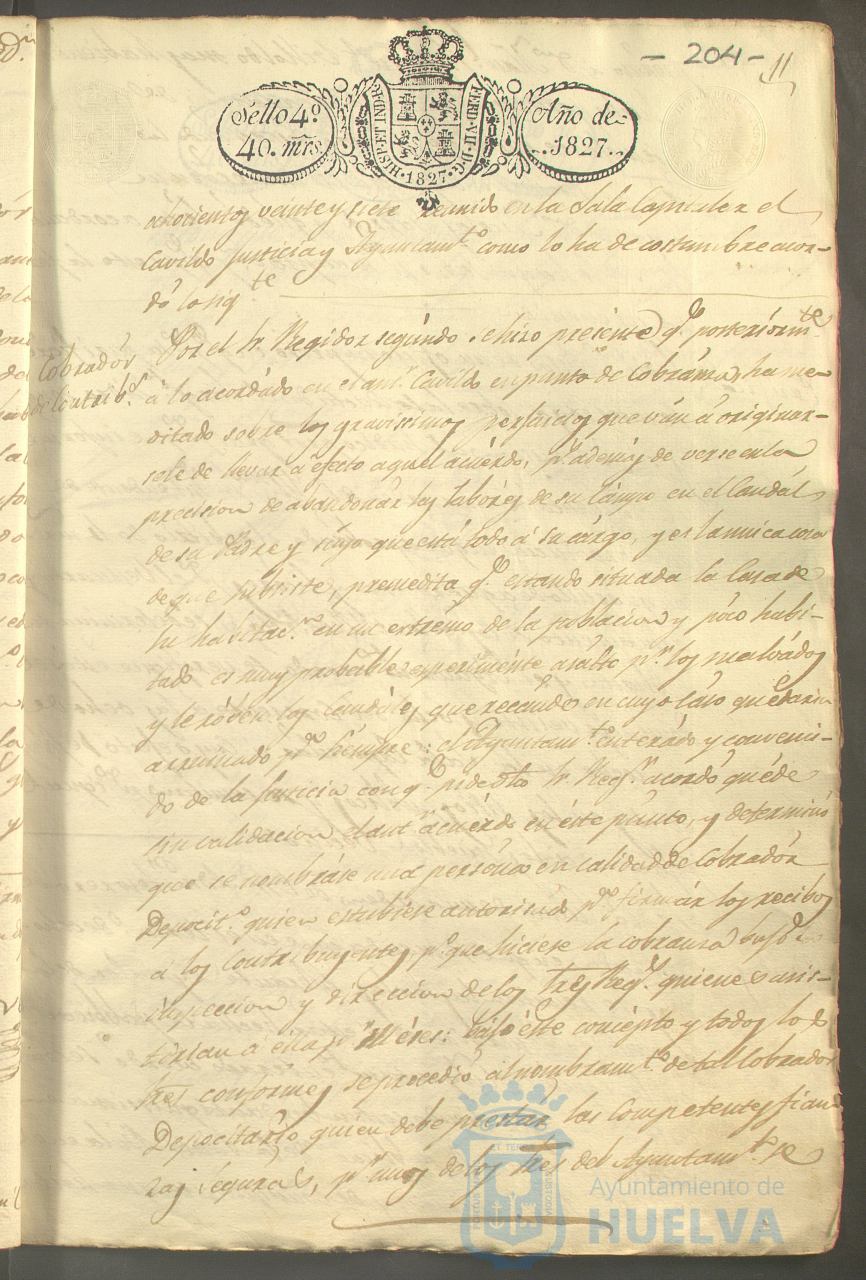 - 204 - 11
Sello 4º
40. mrs
HISP. ET IND. R.
FERD. VII. D. G.
· 1827 ·
Año de
1827.
ochocientos veinte y siete reunido en la Sala Capitular el
Cavildo Justicia y Ayuntamto como lo ha de costumbre acor-
dó lo sigte
Cobradór
de Contribs
Por el Sr Regidor segúndo se hizo presente qe posteriormte
á lo acordádo en el antr Cavildo en punto de Cobránza, ha me-
ditado sobre los gravisimos perjuicios que ván á originar-
sele de llevar á efecto aquel acuérdo, ps además de verse en la
precision de abandonár las labóres de su Cámpo en el Caudál
de su Pádre y suyo que está todo á su cárgo, y es la unica cosa
de que subsiste, premedita qe estando situada la Casa de
su habitacn en un extrémo de la poblacion y póco habi-
tado es muy probable experiménte asálto pr los malvádos
y le róben los Caudáles que recaude en cuyo cáso quedaria
arruinado pa siempre: el Ayuntamto enterádo y convenci-
do de la justicia con qe pide dho Sr Regr acordó quéde
sin validacion el antr acuérdo en éste púnto, y determinó
que se nombráse una persóna en calidad de Cobradór
Depocito quien estubiése autorizado pa firmár los recibos
á los Contribuyentes, pa que hiciese la cobranza bajo la
inspeccion y direccion de los tres Regs quienes asis-
tirian á ella pr Méses: bajo éste concépto y todos los
Sres confórmes se procedió al nombramto de tal Cobrador
Depocitario quien debe prestár las Competentes fian-
zas segúras, pr unos de los Sres del Ayuntamto se
Ayuntamiento de
HUELVA